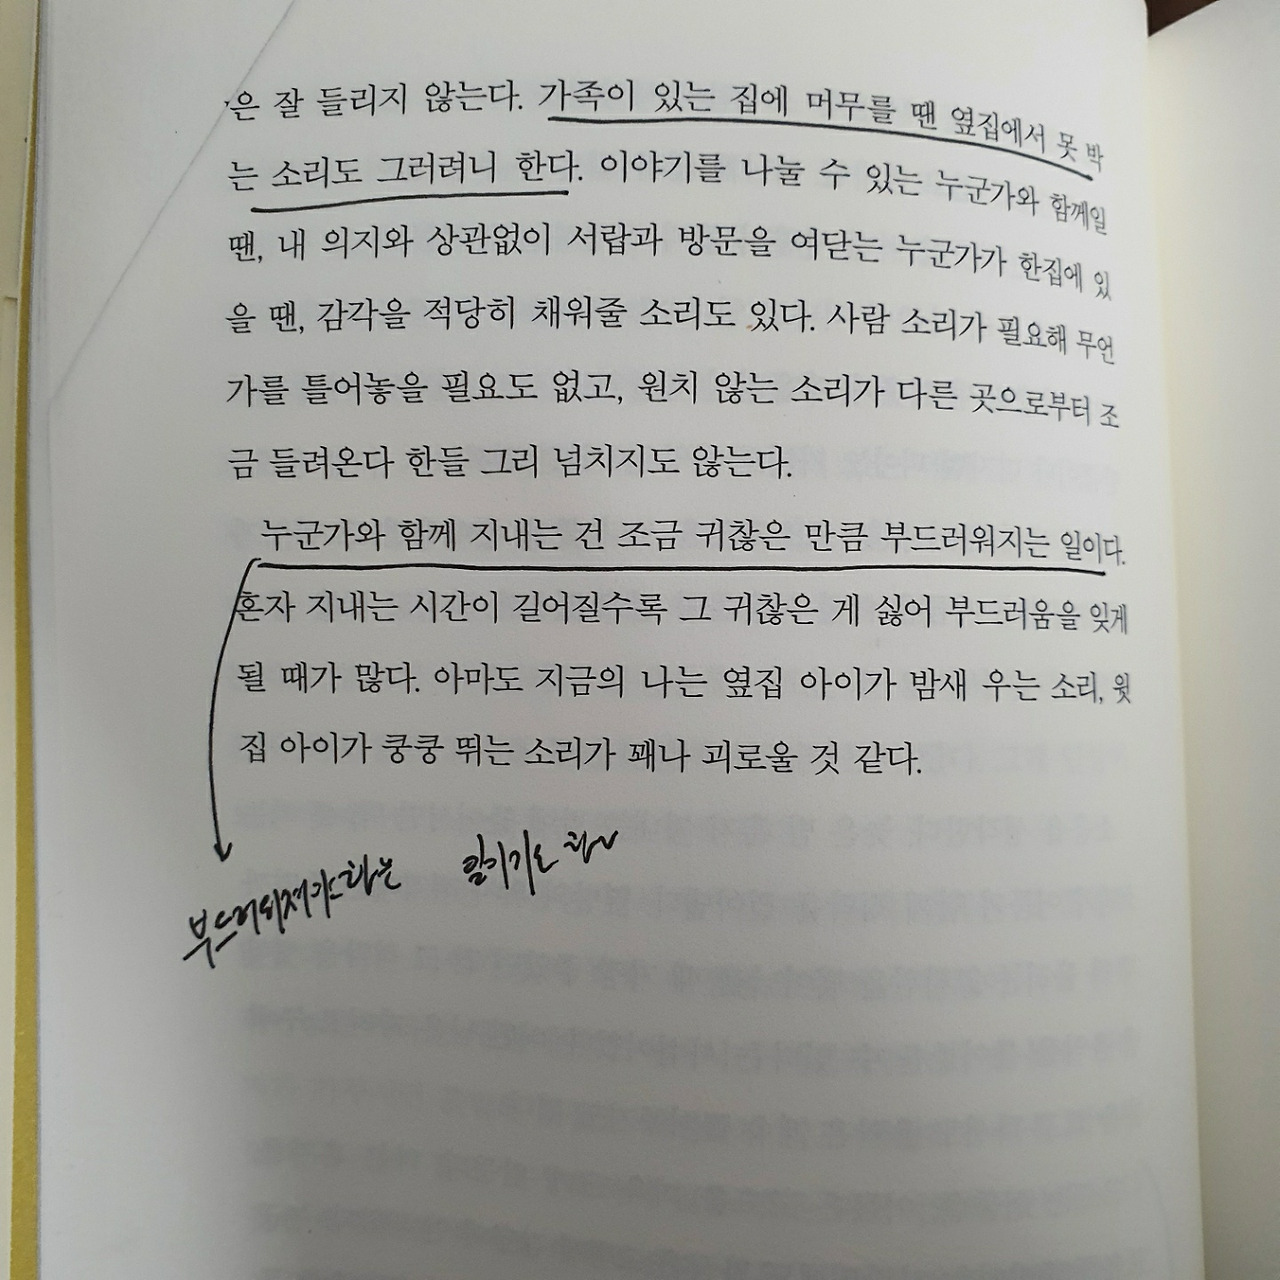 은 잘 들리지 않는다. 가족이 있는 집에 머무를 땐 옆집에서 못 박
는 소리도 그러려니 한다. 이야기를 나눌 수 있는 누군가와 함께일
땐, 내 의지와 상관없이 서랍과 방문을 여닫는 누군가가 한집에 있
을 땐, 감각을 적당히 채워줄 소리도 있다. 사람 소리가 필요해 무언
가를 틀어놓을 필요도 없고, 원치 않는 소리가 다른 곳으로부터 조
금 들려온다 한들 그리 넘치지도 않는다.
누군가와 함께 지내는 건 조금 귀찮은 만큼 부드러워지는 일이다.
혼자 지내는 시간이 길어질수록 그 귀찮은 게 싫어 부드러움을 잊게
될 때가 많다. 아마도 지금의 나는 옆집 아이가 밤새 우는 소리, 윗
집 아이가 쿵쿵 뛰는 소리가 꽤나 괴로울 것 같다.
부드러워져야하는 일이기도